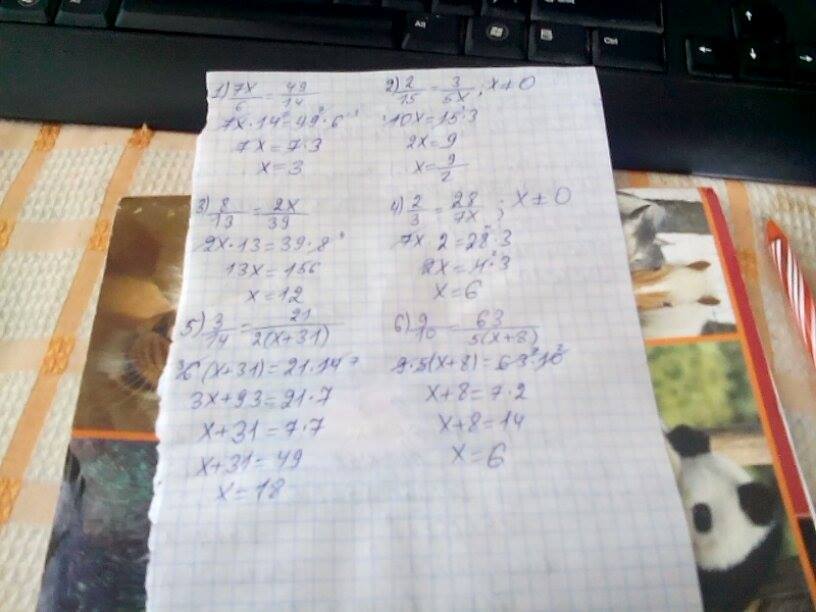 1) 7x/6 = 49/14
7x·14 = 49·6
7x = 7·3
x = 3
2) 2/15 = 3/5x ; x ≠ 0
10x = 15·3
2x = 9
x = 9/2
3) 8/13 = 2x/39
2x·13 = 39·8
13x = 156
x = 12
4) 2/3 = 28/7x ; x ≠ 0
7x 2 = 28·3
2x = 4·3
x = 6
5) 3/14 = 21/2(x+31)
6(x+31) = 21·14
3x+93 = 21·7
x+31 = 7·7
x+31 = 49
x = 18
6) 9/10 = 63/5(x+8)
9·5(x+8) = 63·10
x+8 = 7·2
x+8 = 14
x = 6
Alt
Ctrl